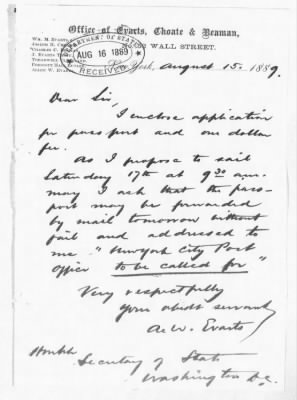 Office of Evarts, Choate & Beaman,
WALL STREET.
WM. M. EVARTS
DEPARTMENT OF STATE
AUG 16 1889
RECEIVED
York, August 15. 1889.
Dear Sir,
I enclose application
for passport and one dollar
fee.
As I propose to sail
Saturday 17th at 9 30 a.m.
may I ask that the pass-
port may be forwarded
by mail tomorrow without
fail and addressed to
me "New York City Post
Office to be called for"
Very respectfully
Your obdt servant
A. W. Evarts
Honble
Secretary of State
Washington D.C.